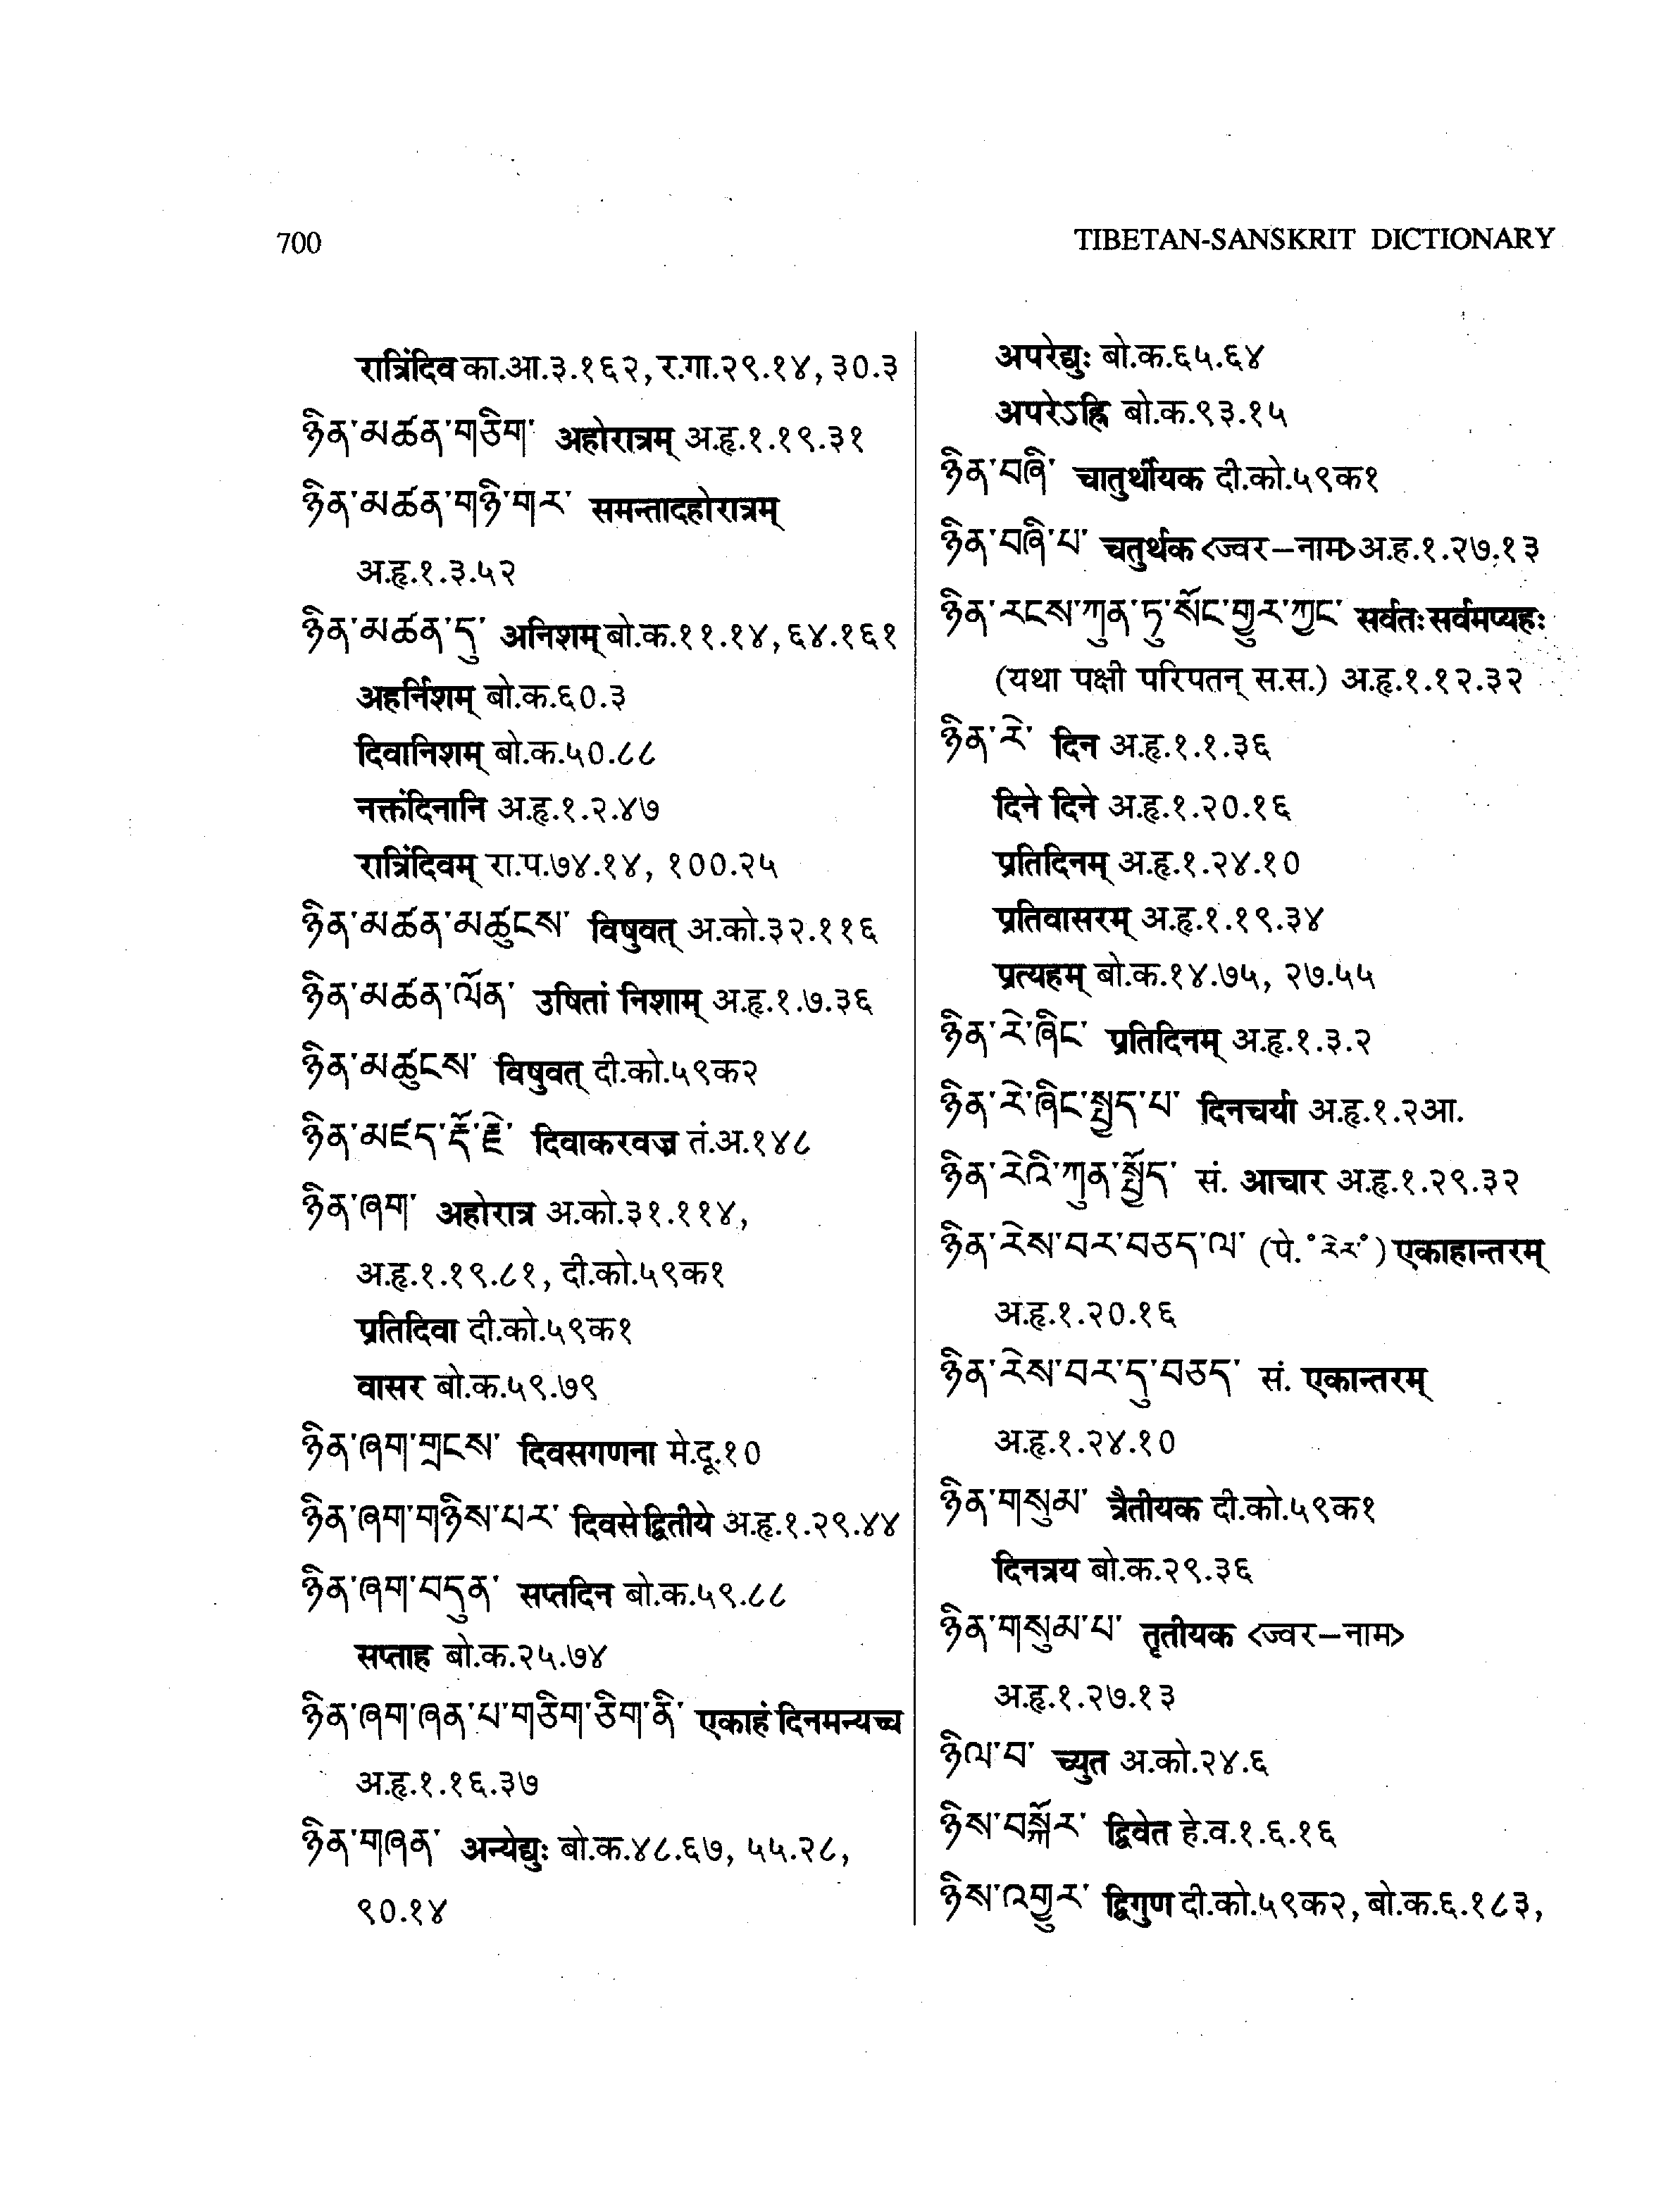 700
TIBETAN-SANSKRIT DICTIONARY
रात्रिंदिव का.आ.३.१६२, र.गा.२९.१४, ३०.३
ཉིན་མཚན་གཅིག་ अहोरात्रम् अ.हृ.१.१९.३१
ཉིན་མཚན་གཉི་གར་ समन्तादहोरात्रम्
अ.हृ.१.३.५२
ཉིན་མཚན་དུ་ अनिशम् बो.क.११.१४, ६४.१६१
अहर्निशम् बो.क.६०.३
दिवानिशम् बो.क.५०.८८
नक्तंदिनानि अ.हृ.१.२.४७
रात्रिंदिवम् रा.प.७४.१४, १००.२५
ཉིན་མཚན་མཚུངས་ विषुवत् अ.को.३२.११६
ཉིན་མཚན་ལོན་ उषितां निशाम् अ.हृ.१.७.३६
ཉིན་མཚུངས་ विषुवत् दी.को.५९क२
ཉིན་མཛད་རྡོ་རྗེ་ दिवाकरवज्र तं.अ.१४८
ཉིན་ཞག་ अहोरात्र अ.को.३१.११४,
अ.हृ.१.१९.८१, दी.को.५९क१
प्रतिदिवा दी.को.५९क१
वासर बो.क.५९.७९
ཉིན་ཞག་གྲངས་ दिवसगणना मे.दू.१०
ཉིན་ཞག་གཉིས་པར་ दिवसे द्वितीये अ.हृ.१.२९.४४
ཉིན་ཞག་བདུན་ सप्तदिन बो.क.५९.८८
सप्ताह बो.क.२५.७४
ཉིན་ཞག་ཞན་པ་གཅིག་ཅིག་ནི་ एकाहं दिनमन्यच्च
अ.हृ.१.१६.३७
ཉིན་གཞན་ अन्येद्युः बो.क.४८.६७, ५५.२८,
९०.१४
अपरेद्युः बो.क.६५.६४
अपरेऽह्नि बो.क.९३.१५
ཉིན་བཞི་ चातुर्थीयक दी.को.५९क१
ཉིན་བཞི་པ་ चतुर्थक <ज्वर–नाम> अ.ह.१.२७.१३
ཉིན་རངས་ཀུན་ཏུ་སོང་གྱུར་ཀྱང་ सर्वतः सर्वमप्यहः
(यथा पक्षी परिपतन् स.स.) अ.हृ.१.१२.३२
ཉིན་རེ་ दिन अ.हृ.१.१.३६
दिने दिने अ.हृ.१.२०.१६
प्रतिदिनम् अ.हृ.१.२४.१०
प्रतिवासरम् अ.हृ.१.१९.३४
प्रत्यहम् बो.क.१४.७५, २७.५५
ཉིན་རེ་ཞིང་ प्रतिदिनम् अ.हृ.१.३.२
ཉིན་རེ་ཞིང་སྤྱད་པ་ दिनचर्या अ.हृ.१.२आ.
ཉིན་རེའི་ཀུན་སྤྱོད་ सं. आचार अ.हृ.१.२९.३२
ཉིན་རེས་བར་བཅད་ལ་ (पे. ˚རེར་˚) एकाहान्तरम्
अ.हृ.१.२०.१६
ཉིན་རེས་བར་དུ་བཅད་ सं. एकान्तरम्
अ.हृ.१.२४.१०
ཉིན་གསུམ་ त्रैतीयक दी.को.५९क१
दिनत्रय बो.क.२९.३६
ཉིན་གསུམ་པ་ तृतीयक <ज्वर–नाम>
अ.हृ.१.२७.१३
ཉིལ་བ་ च्युत अ.को.२४.६
ཉིས་བསྐོར་ द्विवेत हे.व.१.६.१६
ཉིས་འགྱུར་ द्विगुण दी.को.५९क२, बो.क.६.१८३,